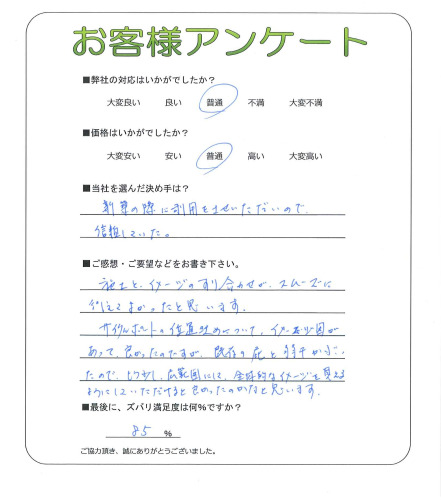 お客様アンケート
■弊社の対応はいかがでしたか?
大変良い 良い 普通 不満 大変不満
■価格はいかがでしたか?
大変安い 安い 普通 高い 大変高い
■当社を選んだ決め手は?
新築の際に利用をさせいただいので、
信頼していた。
■ご感想・ご要望などをお書き下さい。
施主と、イメージのすり合わせが、スムーズに
行えてよかったと思います。
サイクルポートの位置 について、イメージ図が
あって、良かったのですが、既存の庇と
たので、もう少し、広範囲には、全体的なイメージを見える
ようにしていただけると良かったのかなと思います。
■最後に、ズバリ満足度は何%ですか?
85 %
ご協力頂き、誠にありがとうございました。